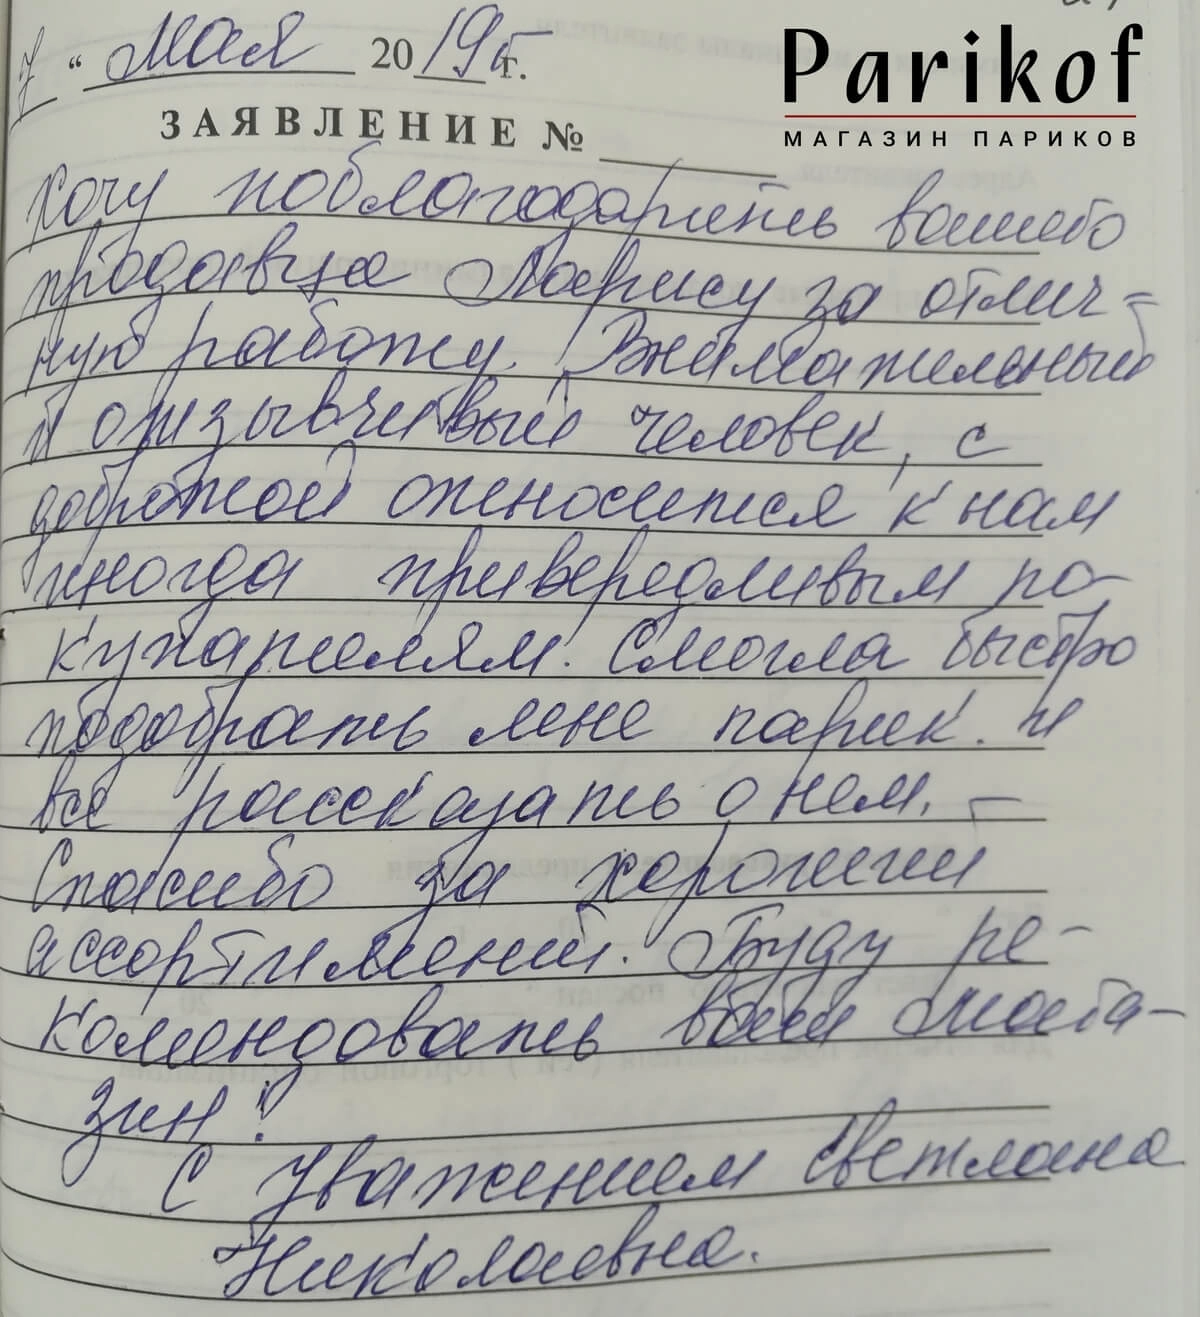 Parikof
МАГАЗИН ПАРИКОВ
7 “ мая 2019 г.
ЗАЯВЛЕНИЕ №
хочу поблагодарить вашего
продавца Ларису за отлич-
ную работу. Внимательный
и отзывчивый человек, с
добротой относится к нам
иногда привередливым по-
купателям. Смогла быстро
подобрать мне парик. и
все рассказать о нем. –
Спасибо за хороший
ассортимент. Буду ре-
комендовать всем магa-
зин!
С уважением Светлана
Николаевна.